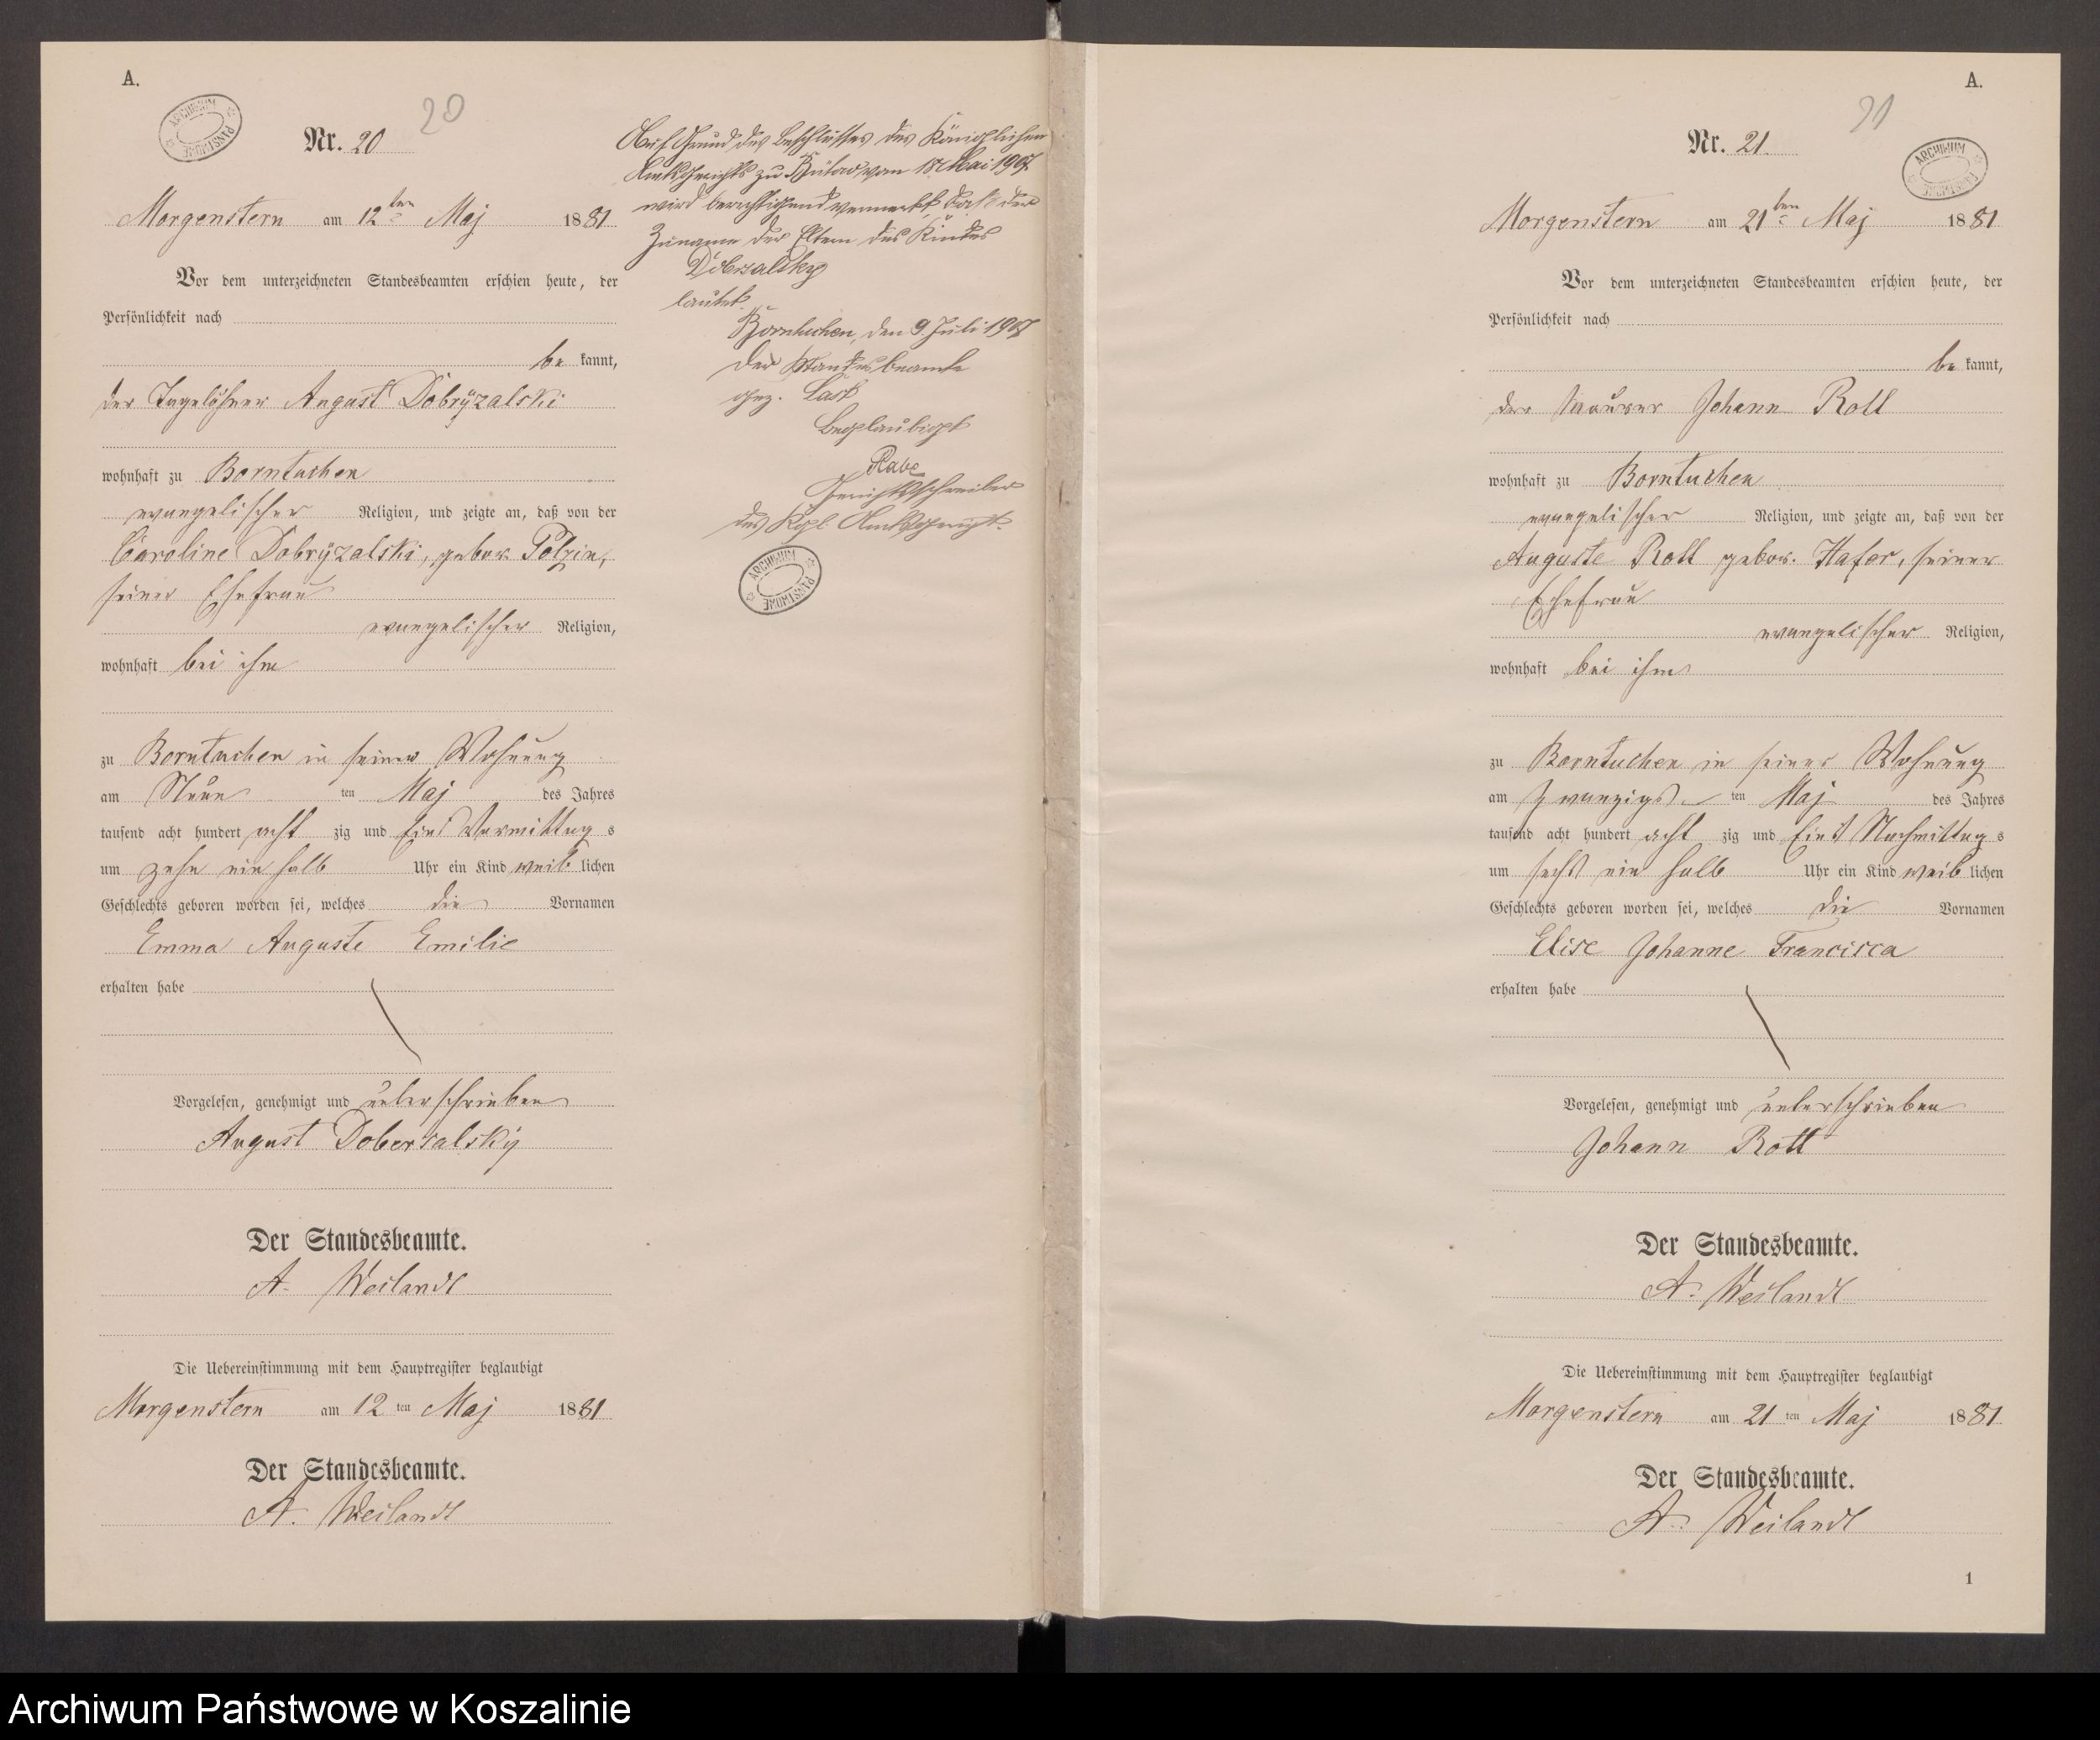 A.
ARCHIWUM PAŃSTWOWE
Nr. 20
20
Morgenstern am 12ten Maj 1881
Vor dem unterzeichneten Standesbeamten erschien heute, der
Persönlichkeit nach
be kannt,
der Tagelöhner August Dobryzalski
wohnhaft zu Borntuchen
evangelischer Religion, und zeigte an, daß von der
Caroline Dobryzalski, gebor. Polzin,
seiner Ehefrau
evangelischer Religion,
wohnhaft bei ihm
zu Borntuchen in seiner Wohnung
am Neun ten Maj des Jahres
tausend acht hundert acht zig und Eins Vormittag s
um zehn ein halb Uhr ein Kind weib lichen
Geschlechts geboren worden sei, welches die Vornamen
Emma Auguste Emilie
erhalten habe
Vorgelesen, genehmigt und unterschrieben
August Dobersalsky
Der Standesbeamte.
A. Weilandt
Die Uebereinstimmung mit dem Hauptregister beglaubigt
Morgenstern am 12 ten Maj 1881
Der Standesbeamte.
A. Weilandt
Auf Grund des Beschlusses des Königlichen
Amtsgerichts zu Bütow vom 18. Mai 1907
wird berichtigend vermerkt, daß der
Zuname der Eltern des Kindes
Dobersalsky
lautet.
Borntuchen, den 9. Juli 1907
Der Standesbeamte
gez. Lask
Beglaubigt
Rabe
Gerichtsschreiber
des Kgl. Amtsgerichts.
ARCHIWUM PAŃSTWOWE
A.
21
Nr. 21.
ARCHIWUM PAŃSTWOWE
Morgenstern am 21ten Maj 1881
Vor dem unterzeichneten Standesbeamten erschien heute, der
Persönlichkeit nach
be kannt,
der Maurer Johann Rott
wohnhaft zu Borntuchen
evangelischer Religion, und zeigte an, daß von der
Auguste Rott gebor. Hafer, seiner
Ehefrau
evangelischer Religion,
wohnhaft bei ihm
zu Borntuchen in seiner Wohnung
am Zwanzigs ten Maj des Jahres
tausend acht hundert acht zig und Eins Nachmittag s
um sechs ein halb Uhr ein Kind weib lichen
Geschlechts geboren worden sei, welches die Vornamen
Elise Johanne Francisca
erhalten habe
Vorgelesen, genehmigt und unterschrieben
Johann Rott
Der Standesbeamte.
A. Weilandt
Die Uebereinstimmung mit dem Hauptregister beglaubigt
Morgenstern am 21 ten Maj 1881
Der Standesbeamte.
A. Weilandt
1
Archiwum Państwowe w Koszalinie